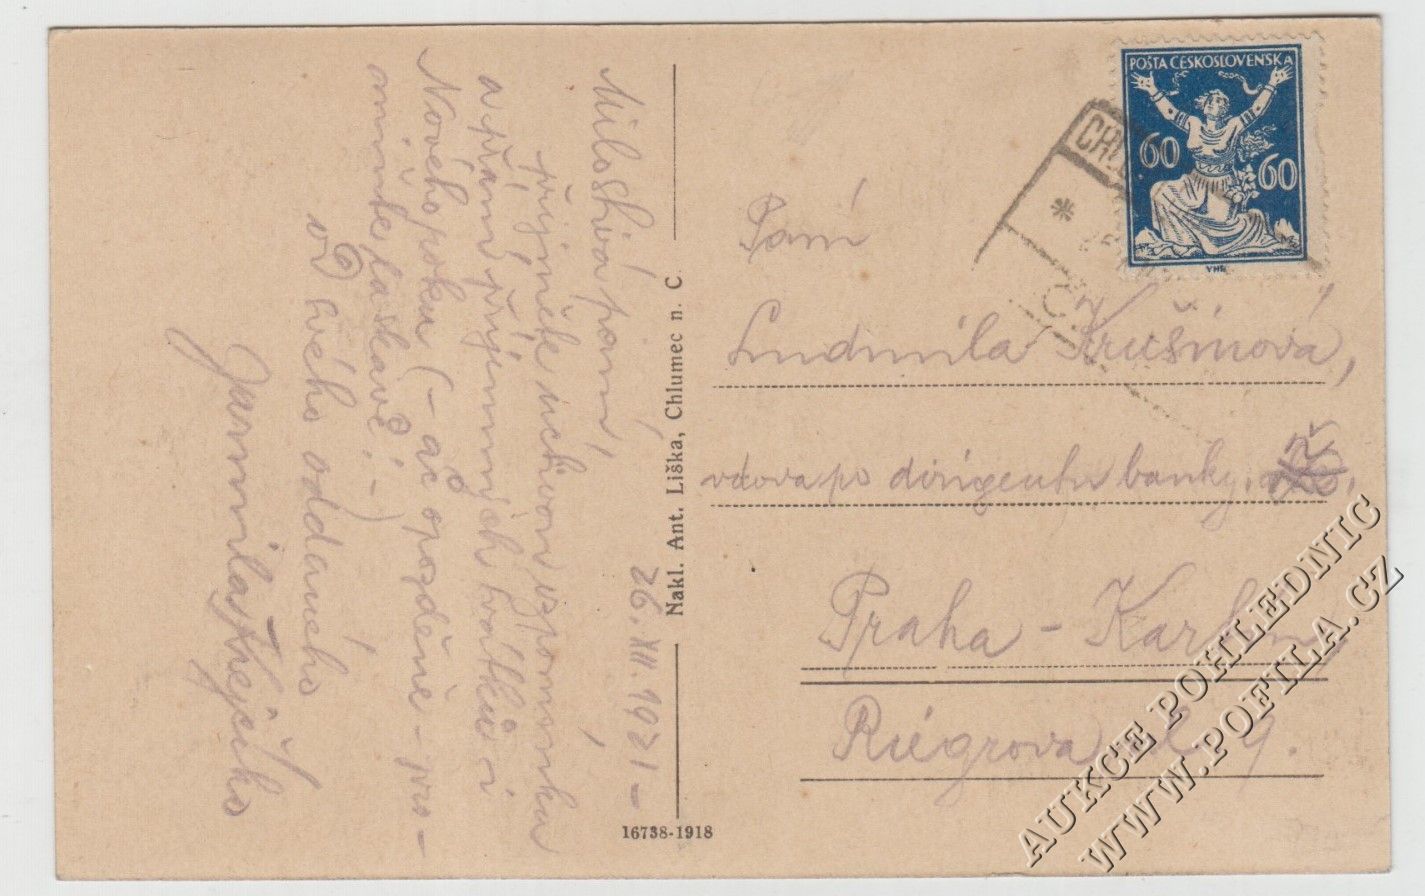 Milostivá paní,
přijměte uctivou vzpomínku
a přání příjemných svátků i
Nového roku (- ač opožděně - pro-
miňte laskavě! -)
od cele oddaného
26. XII. 1921 -
Nakl. Ant. Liška, Chlumec n. C.
16738-1918
POŠTA ČESKOSLOVENSKÁ
60
60
Paní
Ludmila Krušinová,
vdova po dirigentu banky,
Praha - Karlín
Riegrova ul. 9.
AUKCE POHLEDNIC
WWW.POFILA.CZ